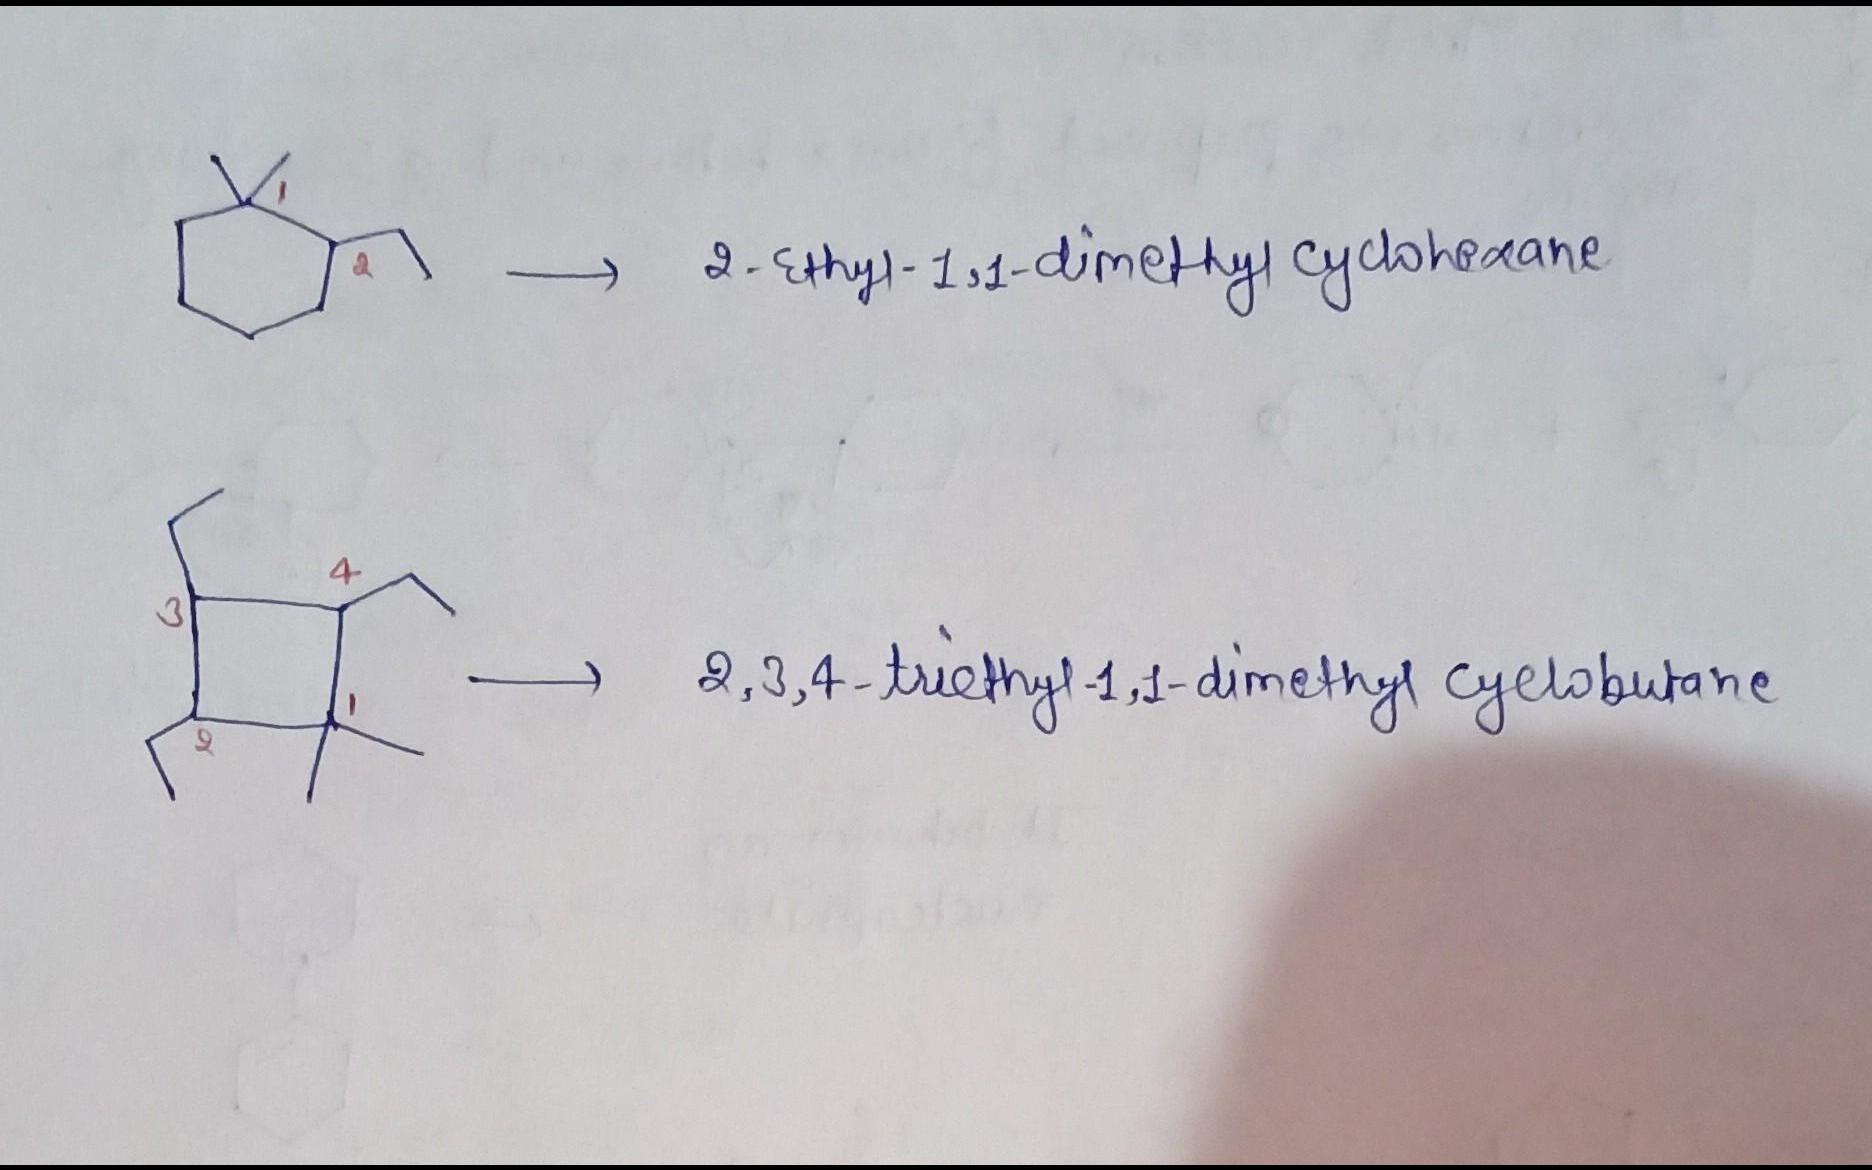 1
2
2-Ethyl-1,1-dimethyl cyclohexane
4
3
2,3,4-triethyl-1,1-dimethyl cyclobutane
1
2